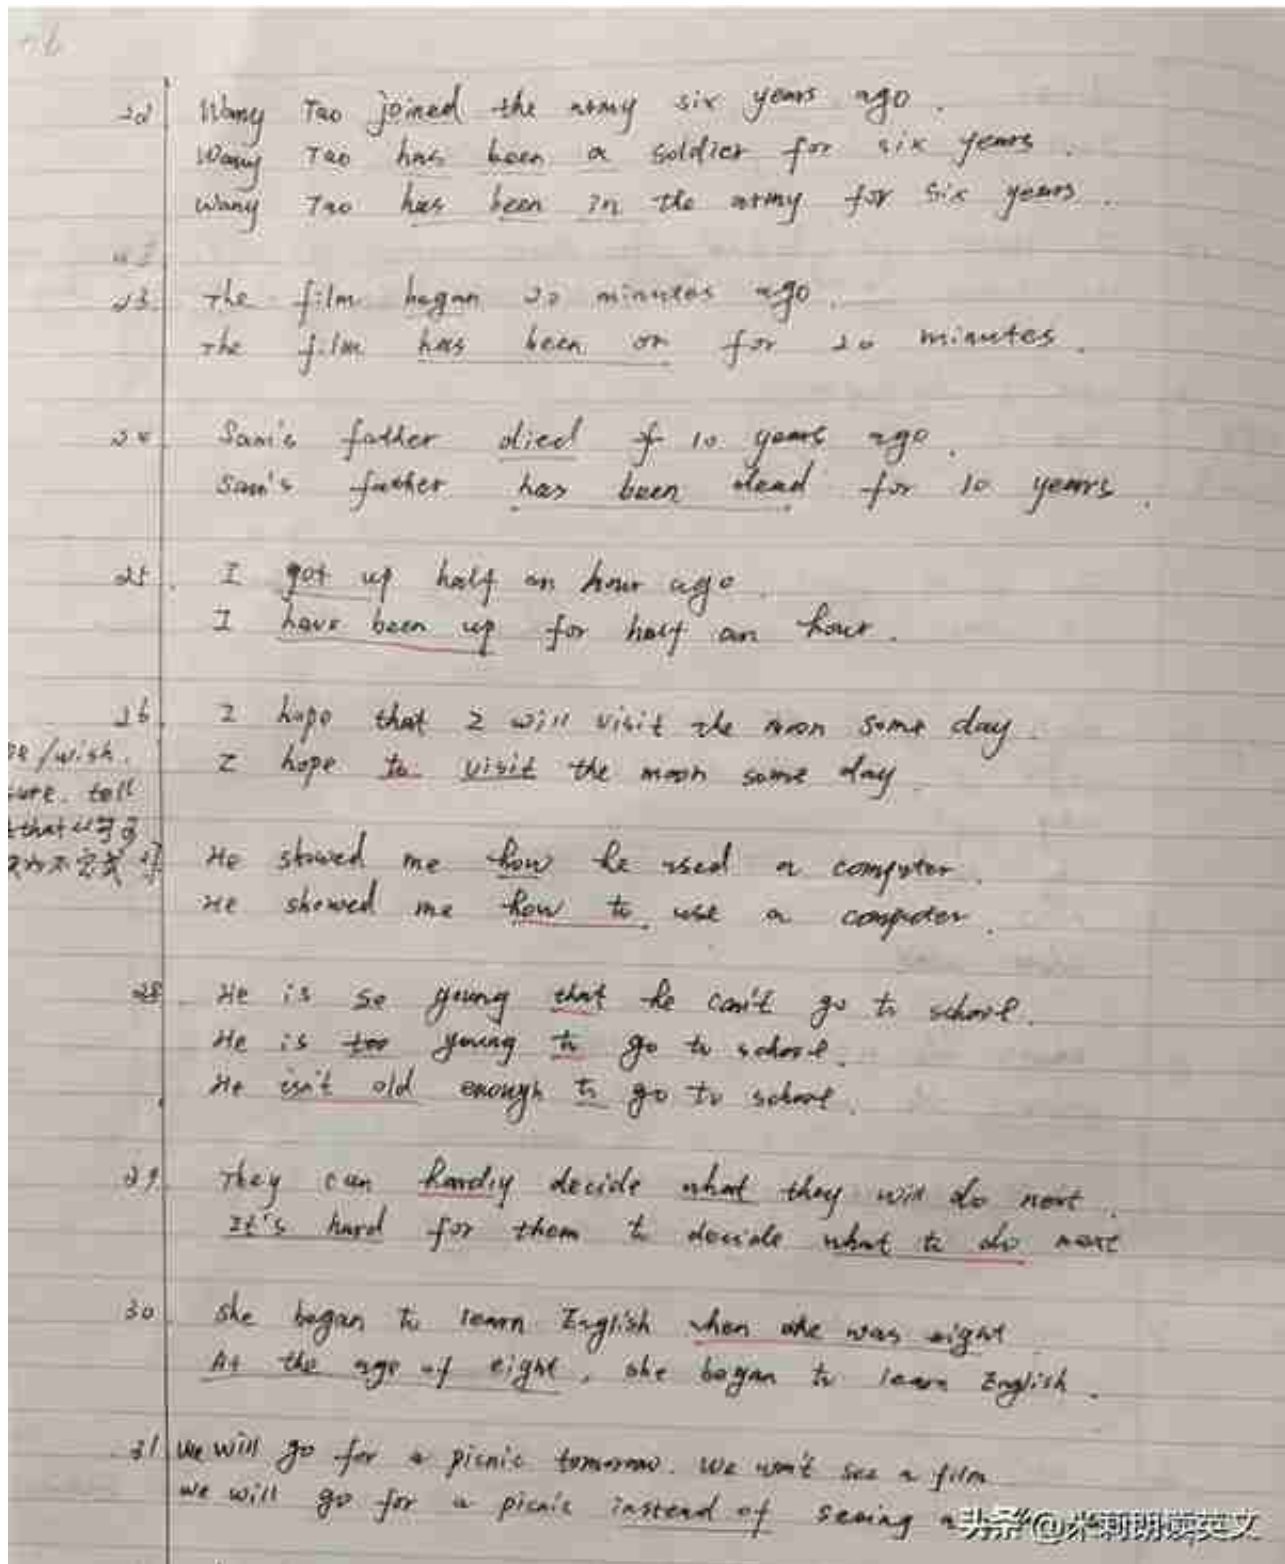 22 Wang Tao joined the army six years ago.
Wang Tao has been a soldier for six years.
Wang Tao has been in the army for six years.
23. The film began 20 minutes ago.
The film has been on for 20 minutes.
24. Sam's father died 10 years ago.
Sam's father has been dead for 10 years.
25. I got up half an hour ago.
I have been up for half an hour.
26 I hope that I will visit the moon some day.
I hope to visit the moon some day.
/wish.
tell
that
He showed me how he used a computer.
He showed me how to use a computer.
28 He is so young that he can't go to school.
He is too young to go to school.
He isn't old enough to go to school.
29. They can hardly decide what they will do next.
It's hard for them to decide what to do next
30. She began to learn English when she was eight
At the age of eight, she began to learn English.
31 We will go for a picnic tomorrow. We won't see a film
We will go for a picnic instead of seeing a
头条@米莉朗读英文